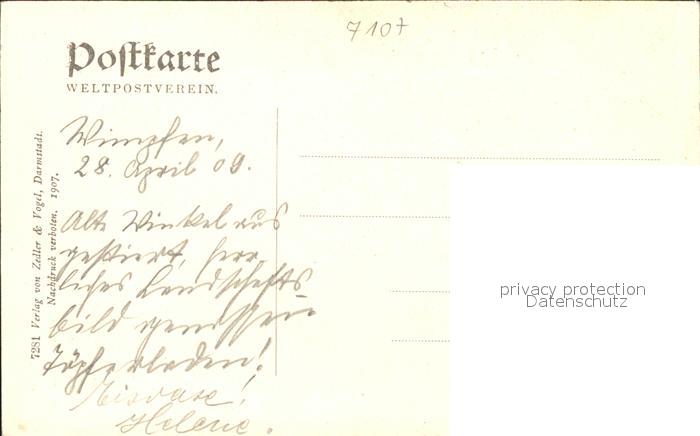 7107
Postkarte
WELTPOSTVEREIN.
7281 Verlag von Zedler & Vogel, Darmstadt.
Nachdruck verboten. 1907.
Wimpfen,
28. April 09.
Alte Winkel aus
herr
liches Landschafts
bild
Töpferladen!
Helene.
privacy protection
Datenschutz